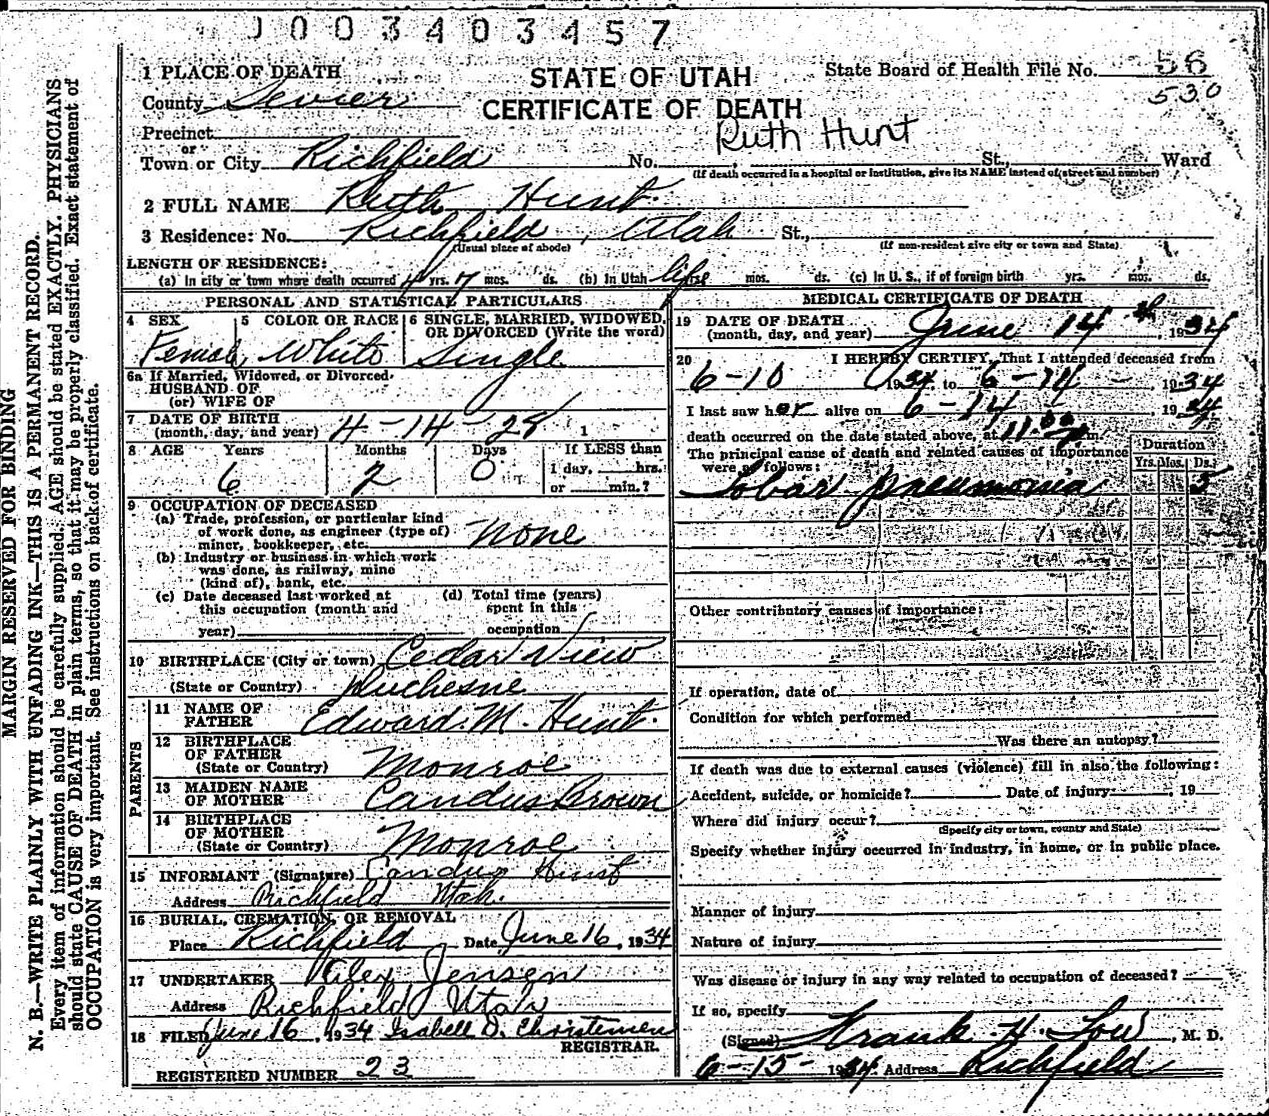 1003403457
MARGIN RESERVED FOR BINDING
N. B.—WRITE PLAINLY WITH UNFADING INK—THIS IS A PERMANENT RECORD.
Every item of information should be carefully supplied. AGE should be stated EXACTLY. PHYSICIANS
should state CAUSE OF DEATH in plain terms, so that it may be properly classified. Exact statement of
OCCUPATION is very important. See instructions on back of certificate.
STATE OF UTAH
CERTIFICATE OF DEATH
State Board of Health File No. 56
530
Ruth Hunt
1 PLACE OF DEATH
County Sevier
Precinct
or
Town or City Richfield No. , St., Ward
(If death occurred in a hospital or institution, give its NAME instead of street and number)
2 FULL NAME Ruth Hunt
3 Residence: No. Richfield, Utah St.,
(Usual place of abode) (If non-resident give city or town and State)
LENGTH OF RESIDENCE:
(a) In city or town where death occurred 4 yrs. 7 mos. ds. (b) In Utah life mos. ds. (c) In U. S., if of foreign birth yrs. mos. ds.
PERSONAL AND STATISTICAL PARTICULARS
4 SEX Female
5 COLOR OR RACE White
6 SINGLE, MARRIED, WIDOWED, OR DIVORCED (Write the word) Single
6a If Married, Widowed, or Divorced
HUSBAND OF
(or) WIFE OF
7 DATE OF BIRTH
(month, day, and year) 4-14-28
8 AGE Years Months Days If LESS than
6 2 0 1 day, hrs.
or min.?
9 OCCUPATION OF DECEASED
(a) Trade, profession, or particular kind
of work done, as engineer (type of)
miner, bookkeeper, etc. none
(b) Industry or business in which work
was done, as railway, mine
(kind of), bank, etc.
(c) Date deceased last worked at
this occupation (month and
year)
(d) Total time (years)
spent in this
occupation
10 BIRTHPLACE (City or town) Cedar View
(State or Country) Duchesne
PARENTS
11 NAME OF
FATHER Edward M. Hunt
12 BIRTHPLACE
OF FATHER
(State or Country) Monroe
13 MAIDEN NAME
OF MOTHER Candus Brown
14 BIRTHPLACE
OF MOTHER
(State or Country) Monroe
15 INFORMANT (Signature) Candus Hunt
Address Richfield Utah.
16 BURIAL, CREMATION, OR REMOVAL
Place Richfield Date June 16, 1934
17 UNDERTAKER Alex Jensen
Address Richfield Utah
18 FILED June 16, 1934 Isabell D. Christensen
REGISTRAR.
REGISTERED NUMBER 23
MEDICAL CERTIFICATE OF DEATH
19 DATE OF DEATH
(month, day, and year) June 14th, 1934
20 I HEREBY CERTIFY, That I attended deceased from
6-10 1934 to 6-14-, 1934
I last saw her alive on 6-14- 1934
death occurred on the date stated above, at 11:00 p m.
The principal cause of death and related causes of importance
were as follows:
Duration
Yrs. Mos. Ds.
Lobar pneumonia 5
Other contributory causes of importance:
If operation, date of
Condition for which performed
Was there an autopsy?
If death was due to external causes (violence) fill in also the following:
Accident, suicide, or homicide? Date of injury , 19
Where did injury occur?
(Specify city or town, county and State)
Specify whether injury occurred in industry, in home, or in public place.
Manner of injury
Nature of injury
Was disease or injury in any way related to occupation of deceased?
If so, specify
(Signed) Frank H. Low, M. D.
6-15- 1934 Address Richfield